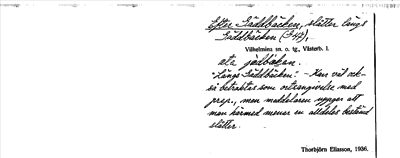 Efter Gäddbäcken, slåtter längs
Gäddbäcken (S 47),
Vilhelmina sn. o. tg., Västerb. l.
"Längs Gäddbäcken:" – Kan väl ock-
så betraktas som ortsangivelse med
prep., men meddelaren uppger att
man härmed menar en alldeles bestämd
slåtter.
Thorbjörn Eliasson, 1936.